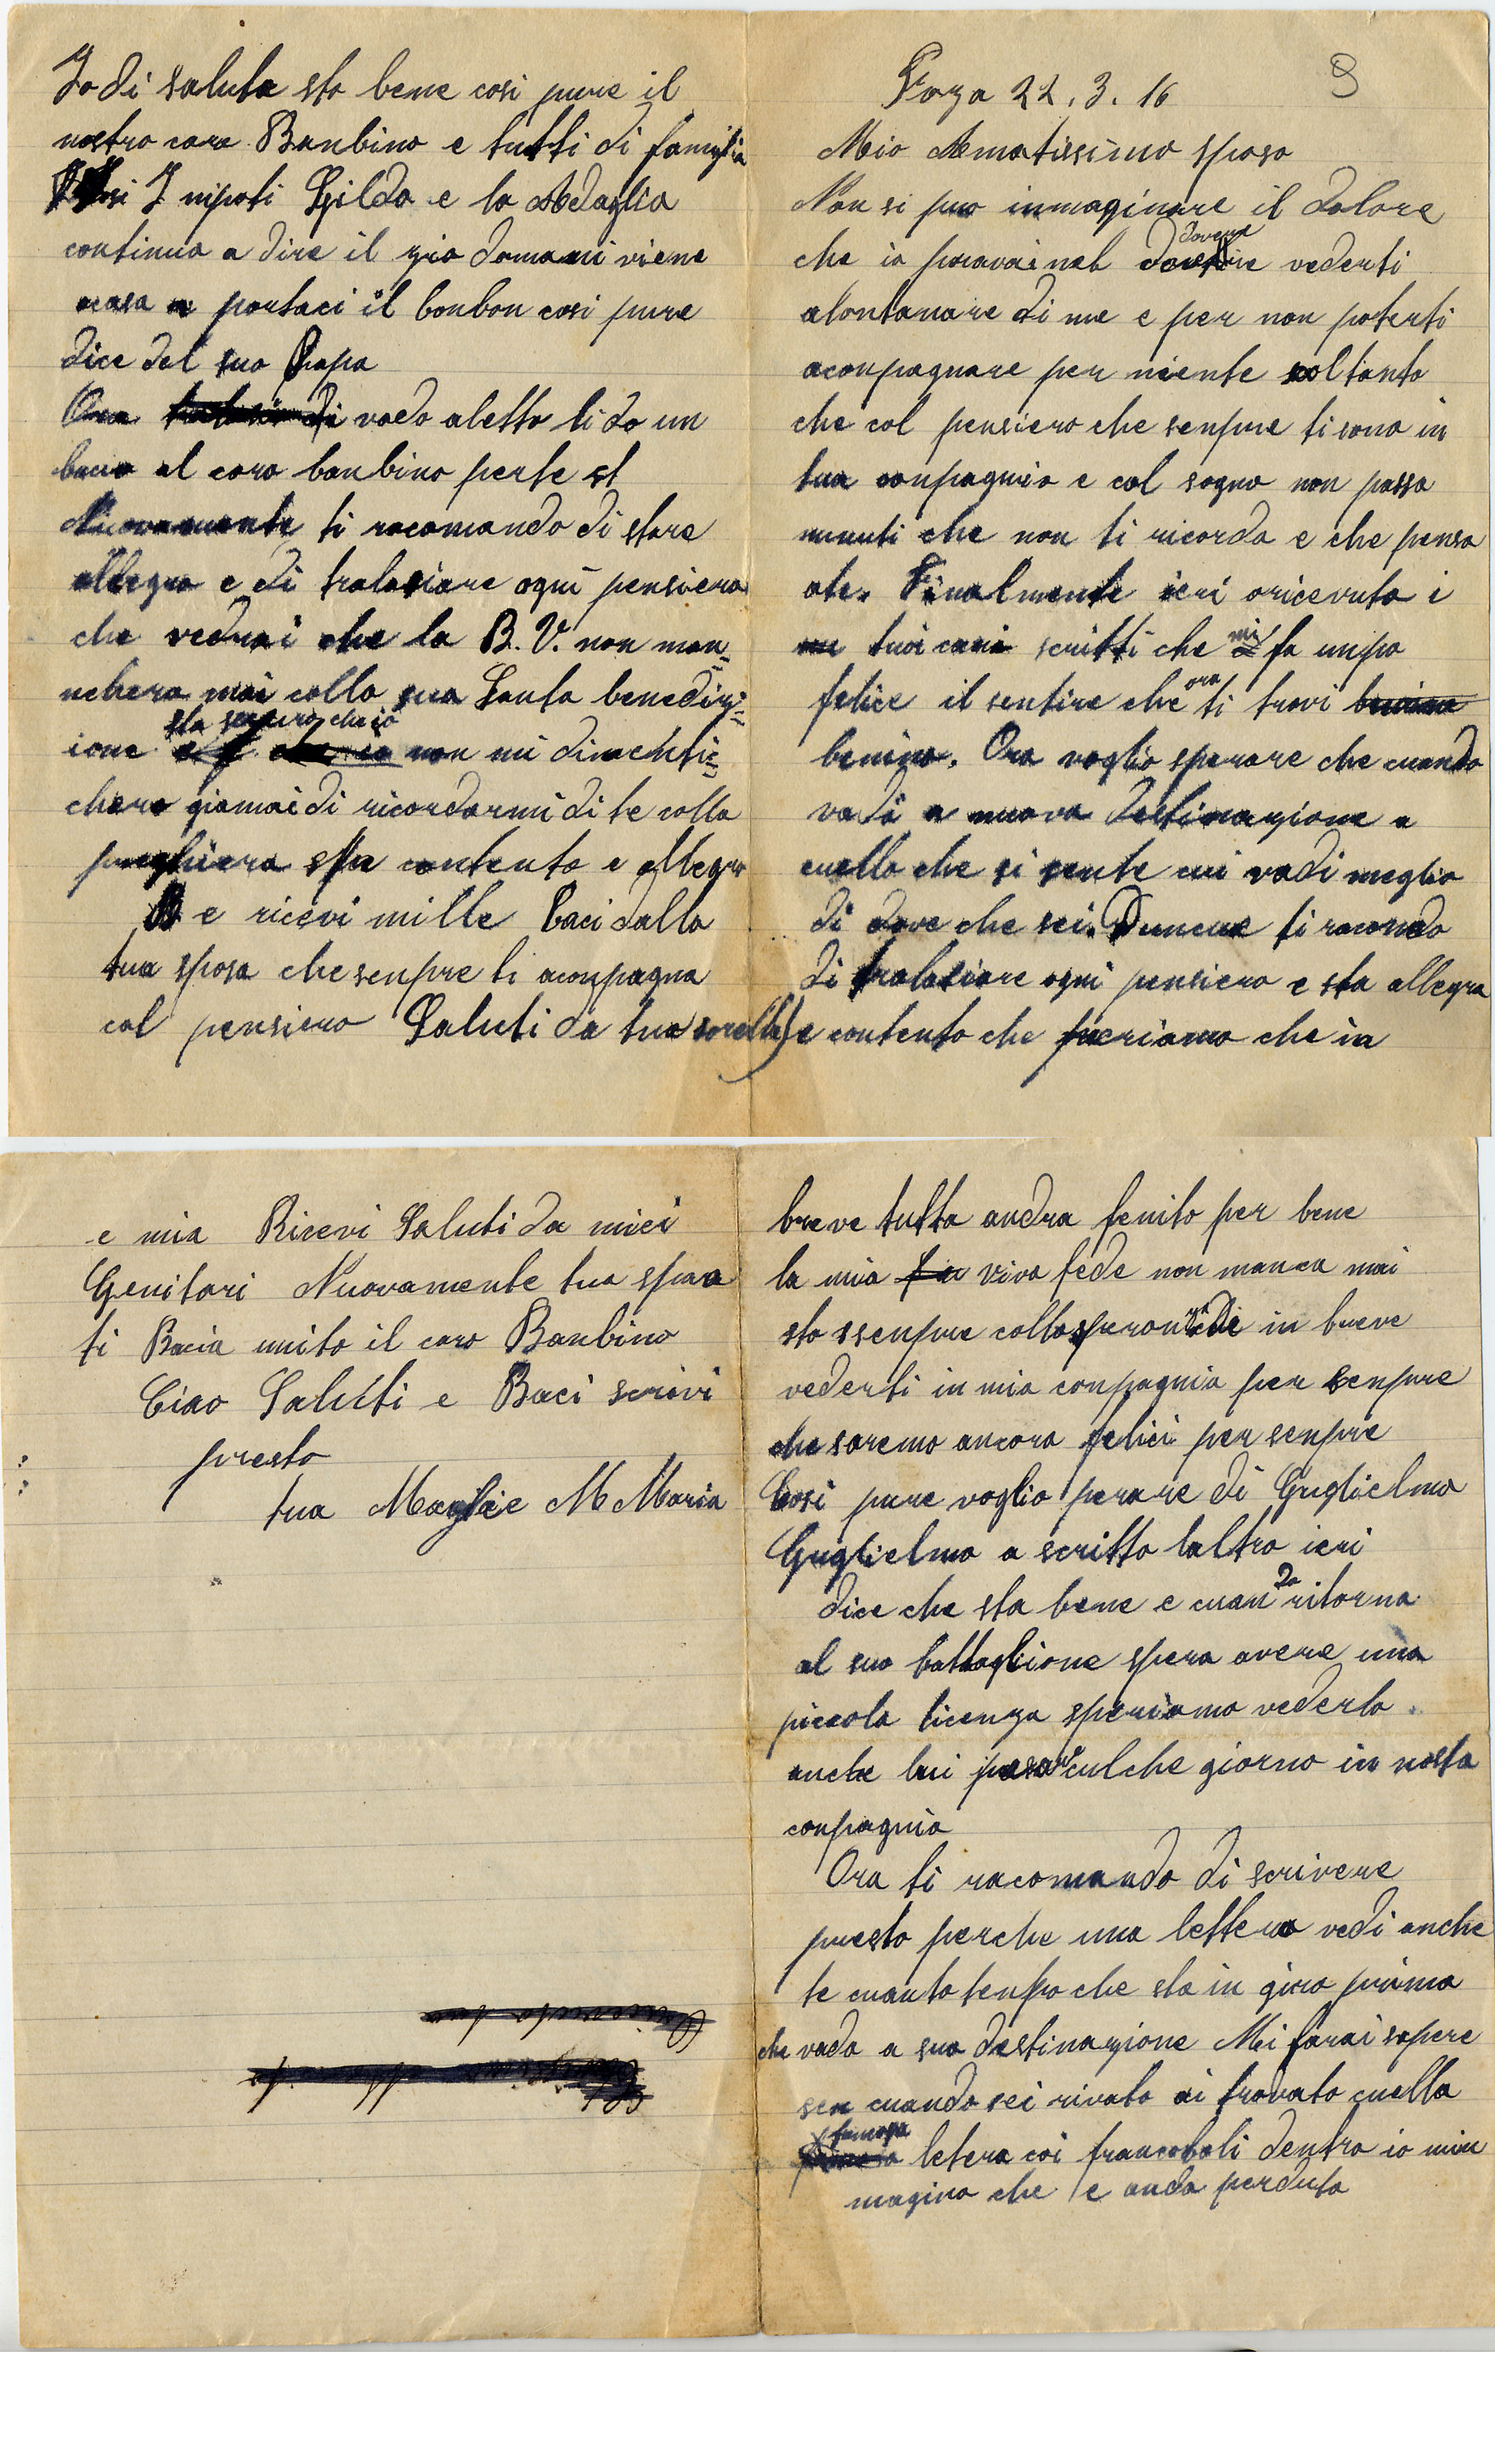 9
Foza 22.3.16
Mio Amatissimo sposo
Non si puo inmaginare il dolore
che io provai nel dovere vederti
alontanare di me e per non poterti
aconpagnare per niente soltanto
che col pensiero che senpre ti sono in
tua conpagnia e col sogno non passa
minuti che non ti ricorda e che penso
ate. Finalmente ieri oricevuto i
tuoi cari scritti che mi fa unpo
felice il sentire che ora ti trovi
benino. Ora voglio sperare che cuando
vadi a nuova destinazione a
cuello che si sente cui vadi meglio
di dove che sei. Duncue ti racomado
di tralasiare ogni pensiero e sta allegra
e contento che speriamo che in
breve tutto andra fenito per bene
la mia viva fede non manca mai
sto ssenpre colla speranza di in breve
vederti in mia conpagnia per senpre
che saremo ancora felici per senpre
Cosi pure voglio perare di Guglielmo
Guglielmo a scritto laltro ieri
dice che sta bene e cuando ritorna
al suo battaglione spera avere una
piccola licenza speriamo vederlo
anche lui pasare culche giorno in nosta
conpagnia
Ora ti racomando di scrivere
presto perche una lettera vedi anche
te cuanto tenpo che sta in giro prima
che vada a sua destinazione Mi farai sapere
sen cuando sei rivato ai trovato cuella
famosa letera coi francoboli dentro io min
magino che e anda perduta
Io di saluta sto bene cosi pure il
nostro caro Banbino e tutti di famiglia
I nipoti Gildo e la Adaglia
continua a dire il zio domani viene
acasa a portaci il bonbon cosi pure
dice del suo Papa
Ora vaedo aletto ti do un
bacio al caro banbino perte st
Nuovamente ti racomando di stare
allegro e di tralasiare ogni pensiero
che vedrai che la B. V. non man=
nchera mai colla sua Santa benediz=
ione sta seguro che io non mi dimenti=
chero giamai di ricordarmi di te colla
preghiera sta contento e allegro
e ricevi mille baci dalla
tua sposa che senpre ti aconpagna
col pensiero Saluti da tua sorella
e mia Ricevi Saluti da miei
Genitori Nuovamente tua sposa
ti Bacia unito il caro Banbino
Ciao Saluti e Baci scrivi
presto
tua Moglie M Maria